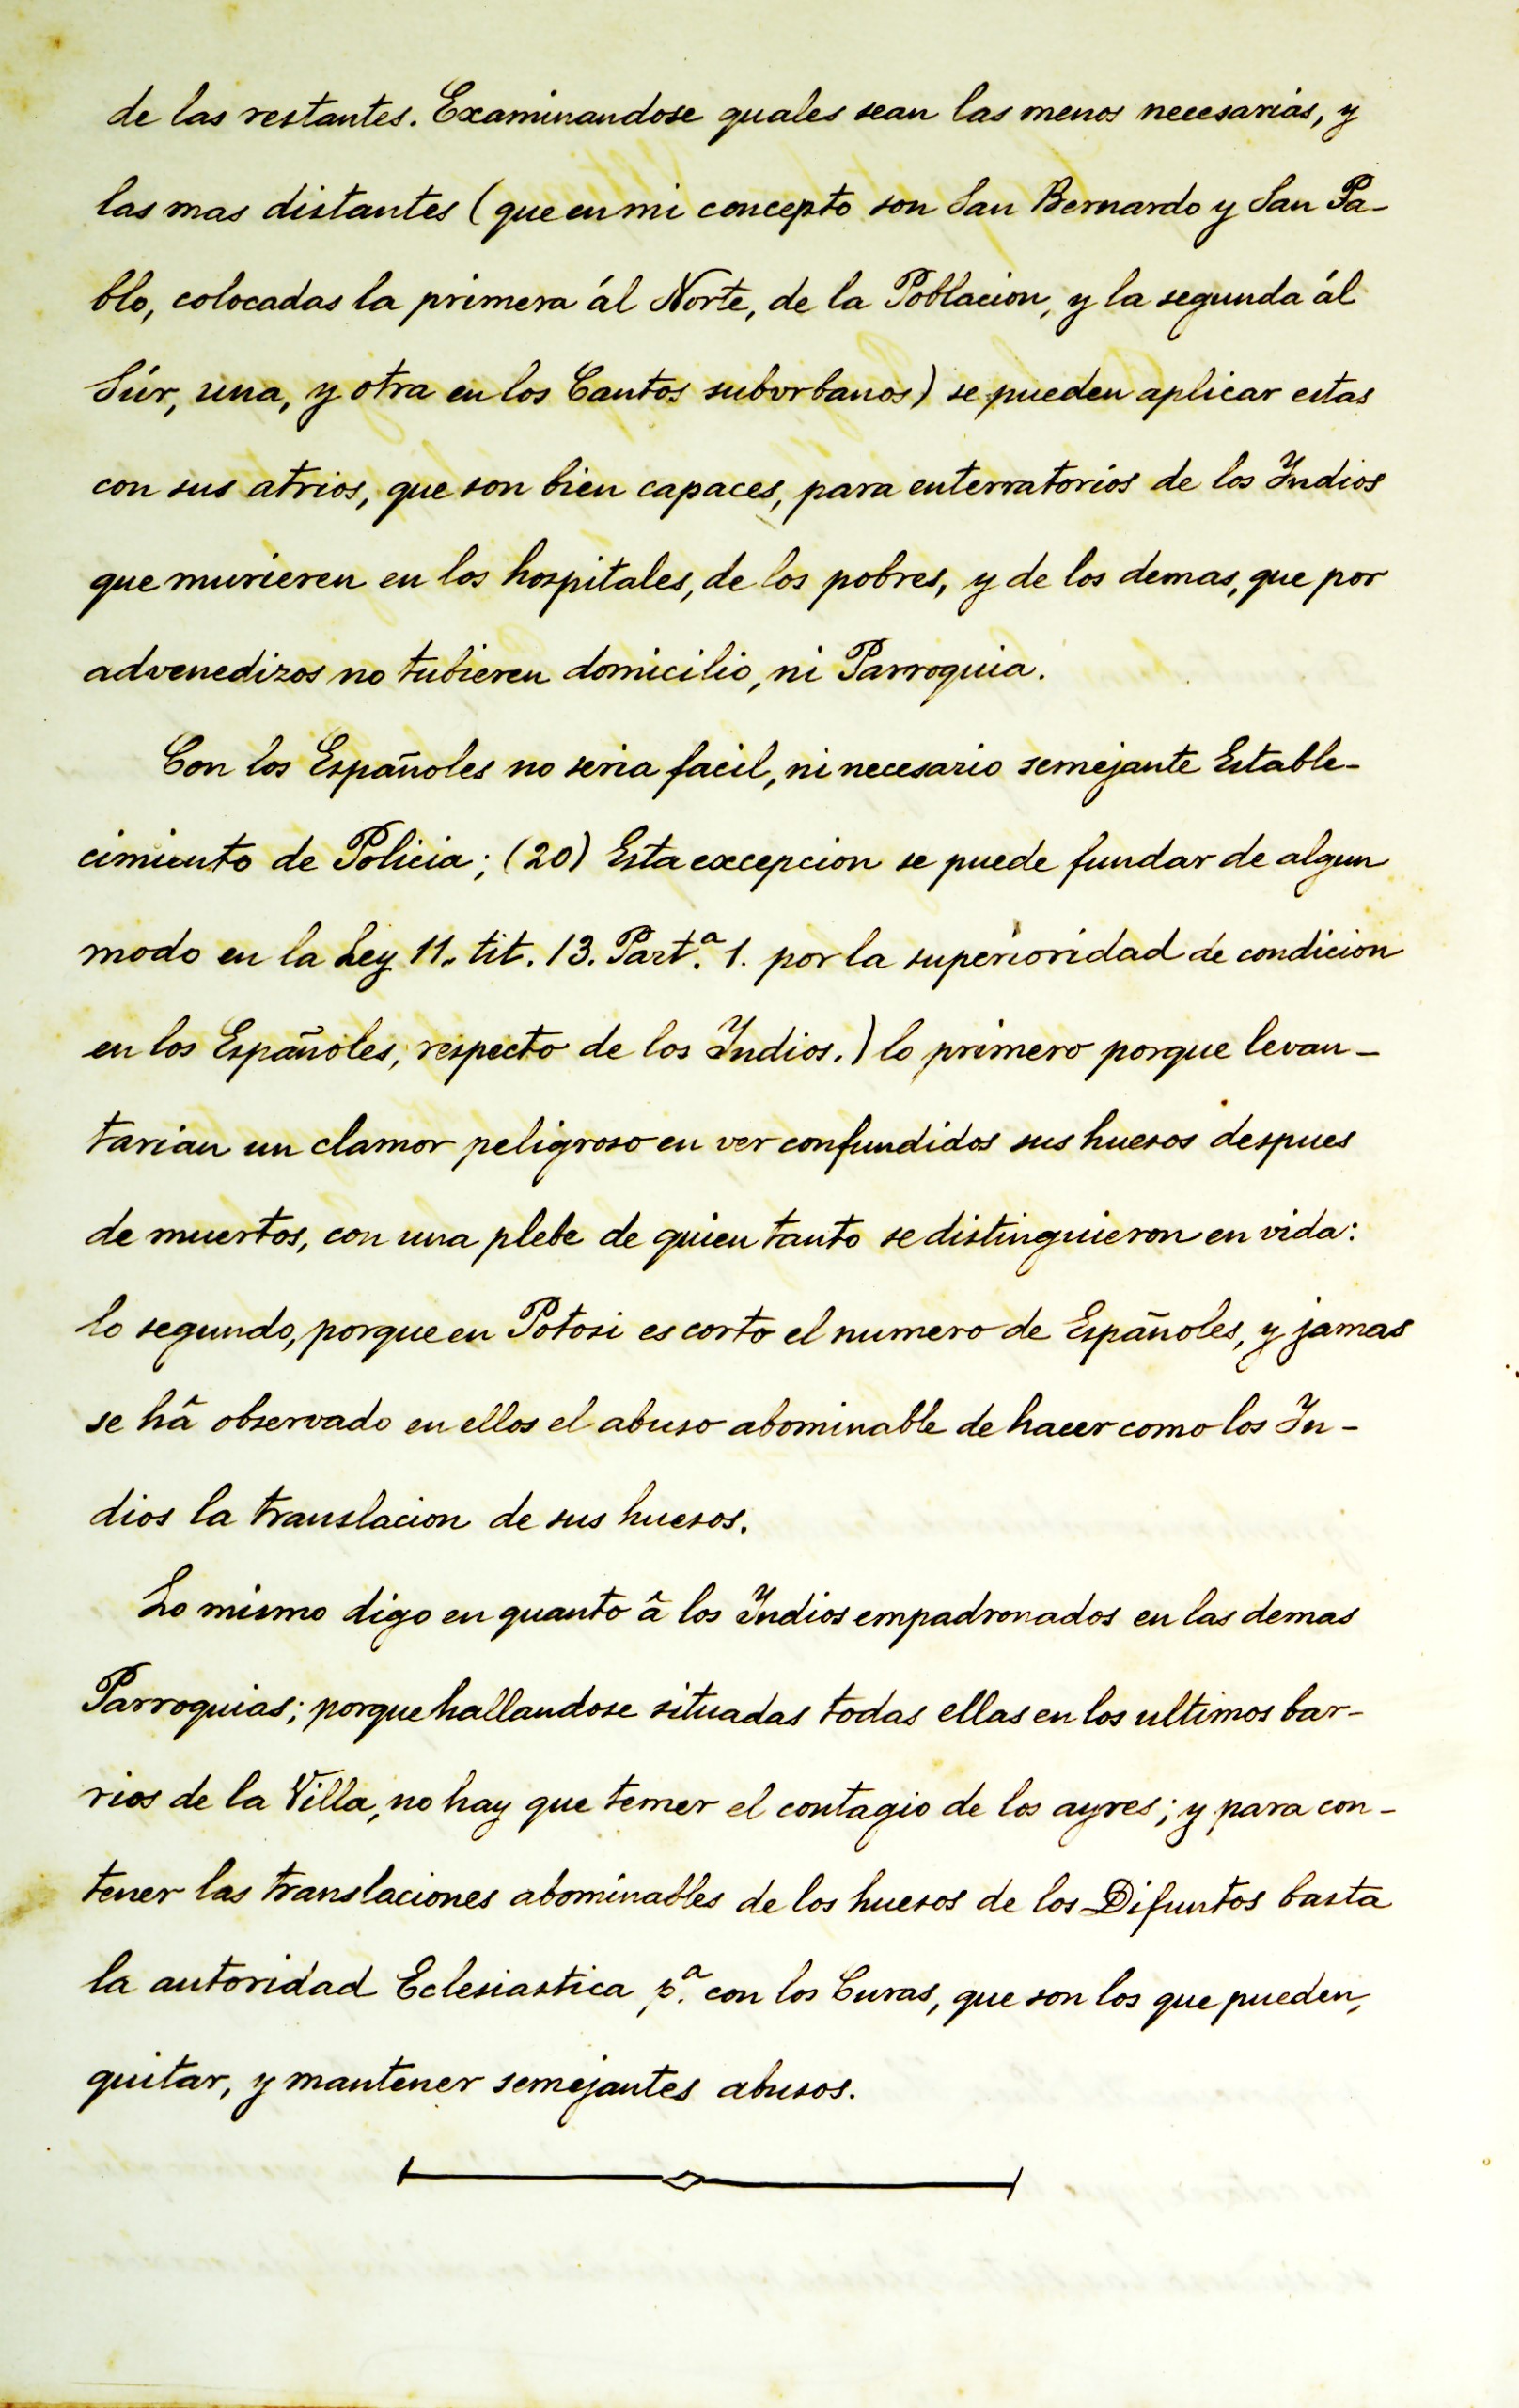 de las restantes. Examinandose quales sean las menos necesarias, y
las mas distantes (que en mi concepto son San Bernardo y San Pa-
blo, colocadas la primera ál Norte, de la Poblacion, y la segunda ál
Súr, una, y otra en los Cantos suburbanos) se pueden aplicar estas
con sus atrios, que son bien capaces, para enterratorios de los Indios
que murieren en los hospitales, de los pobres, y de los demas, que por
advenedizos no tubieren domicilio, ni Parroquia.
Con los Españoles no seria facil, ni necesario semejante Estable-
cimiento de Policia; (20) Esta excepcion se puede fundar de algun
modo en la Ley 11. tit. 13. Part.ª 1. por la superioridad de condicion
en los Españoles, respecto de los Indios.) lo primero porque levan-
tarian un clamor peligroso en ver confundidos sus huesos despues
de muertos, con una plebe de quien tanto se distinguieron en vida:
lo segundo, porque en Potosi es corto el numero de Españoles, y jamas
se hâ observado en ellos el abuso abominable de hacer como los In-
dios la translacion de sus huesos.
Lo mismo digo en quanto â los Indios empadronados en las demas
Parroquias; porque hallandose situadas todas ellas en los ultimos bar-
rios de la Villa, no hay que temer el contagio de los ayres; y para con-
tener las translaciones abominables de los huesos de los Difuntos basta
la autoridad Eclesiastica p.ª con los Curas, que son los que pueden,
quitar, y mantener semejantes abusos.